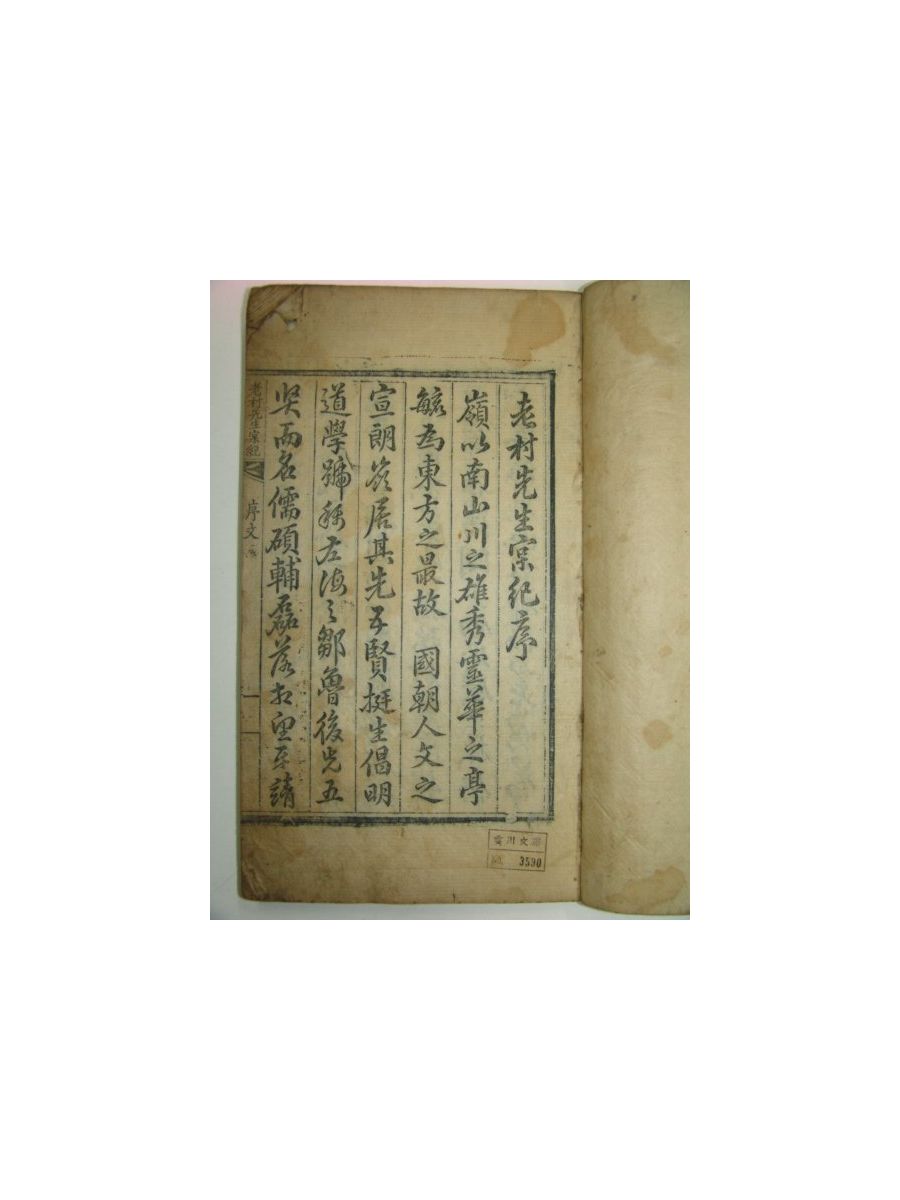 老村先生宲紀序
嶺以南山川之雄秀靈華之亭
毓為東方之最故 國朝人文之
宣朗岺居其先五賢挺生倡明
道學號稱左海之鄒魯後先五
賢而名儒碩輔磊落相望
老村先生宲紀 序文
川文
No. 3590